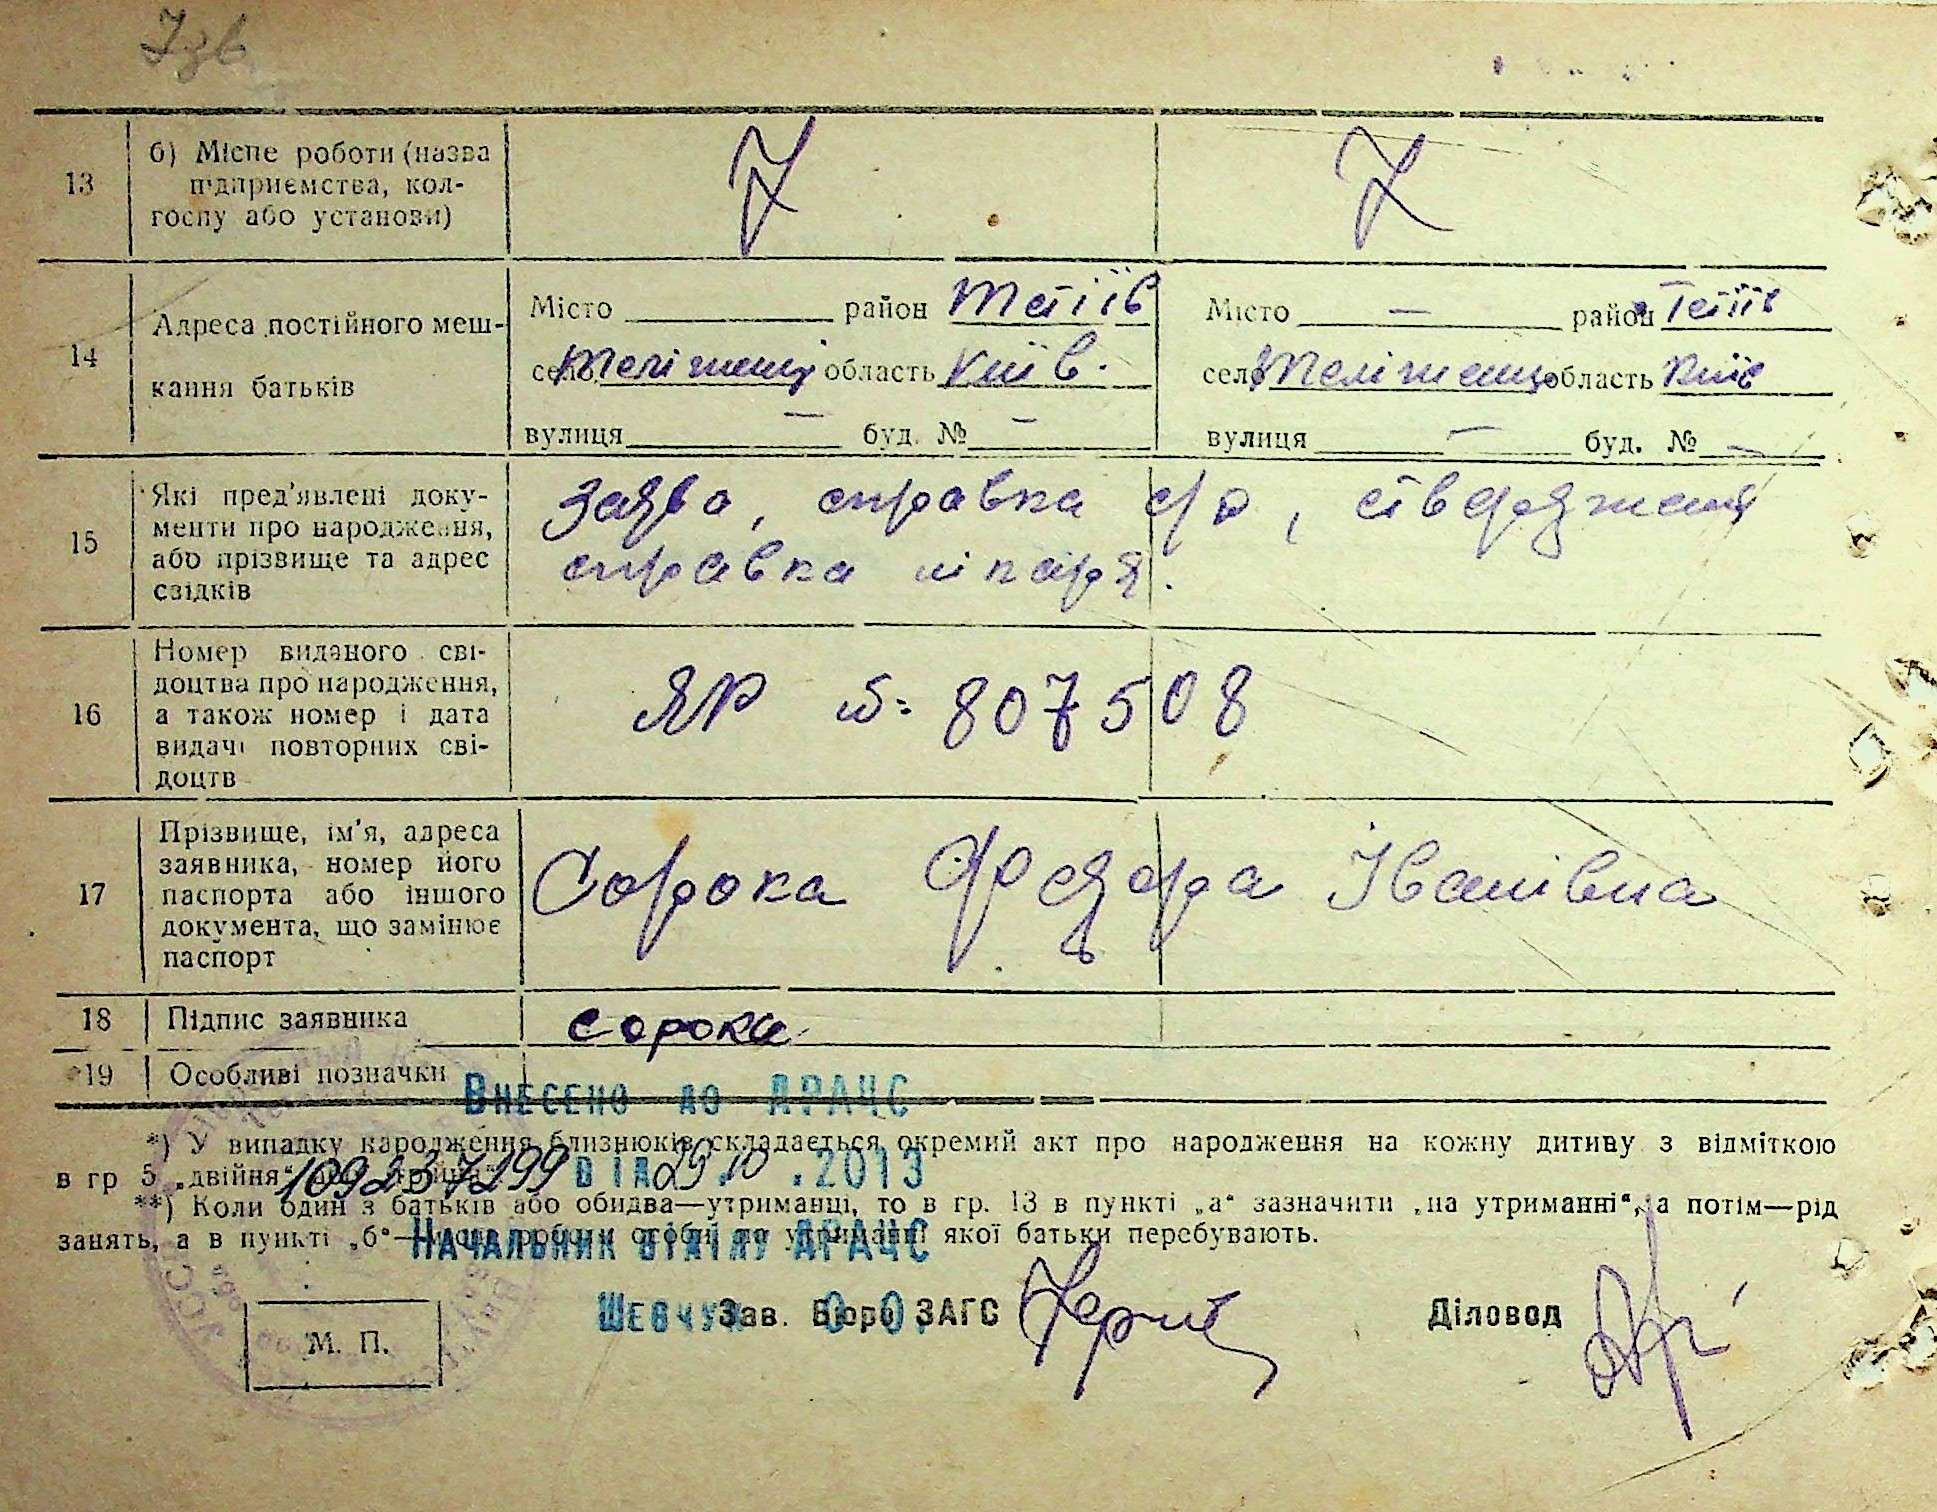 13
б) Місце роботи (назва
підприємства, кол-
госпу або установи)
14
Адреса постійного меш-
кання батьків
Місто район Тетіїв
село Теліженці область Київ.
вулиця — буд. № —
Місто — район Тетіїв
село Теліженці область Київ
вулиця — буд. № —
15
Які пред'явлені доку-
менти про народження,
або прізвище та адрес
свідків
Заява, справка с/р, ствердження
справка лікаря.
16
Номер виданого сві-
доцтва про народження,
а також номер і дата
видачі повторних сві-
доцтв
ЯР № 807508
17
Прізвище, ім'я, адреса
заявника, номер його
паспорта або іншого
документа, що замінює
паспорт
Сорока Федора Іванівна
18
Підпис заявника
Сорока
19
Особливі позначки
Внесено до ДРАЦС
*) У випадку народження близнюків складається окремий акт про народження на кожну дитину з відміткою
в гр 5 „двійня“
109237299 від 29.10.2013
**) Коли один з батьків або обидва—утриманці, то в гр. 13 в пункті „а“ зазначити „на утриманні“, а потім—рід
занять, а в пункті „б“—місце роботи особи, на утриманні якої батьки перебувають.
Начальник відділу ДРАЦС
Шевчук О.О.
Зав. Бюро ЗАГС
Діловод
М. П.